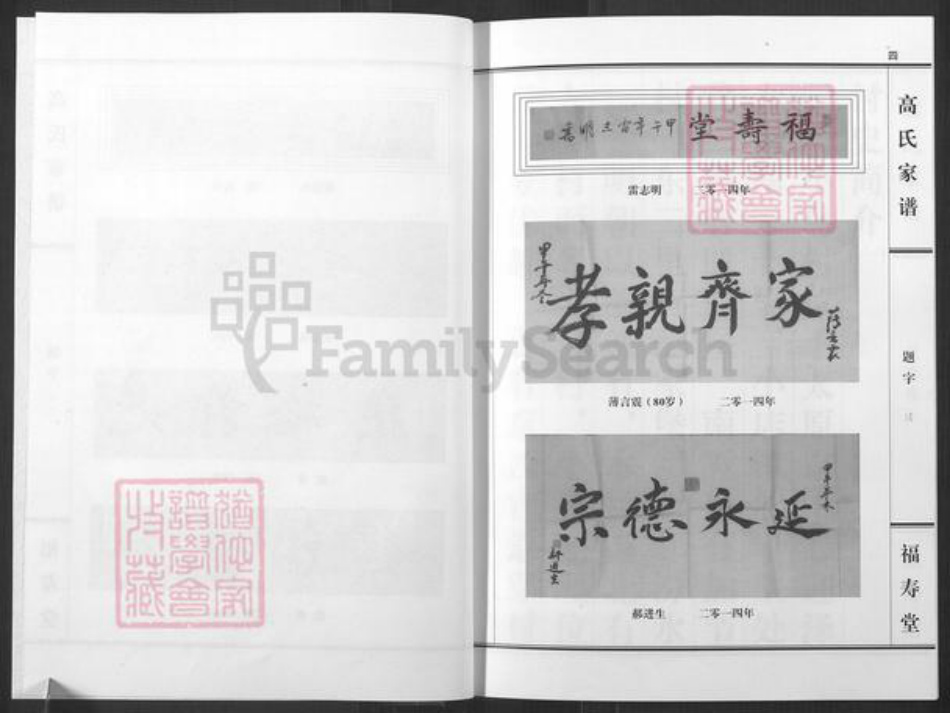 四
高氏家谱
题字
福寿堂
福壽堂
甲午年雷志明書
雷志明 二零一四年
家齊親孝
甲午年冬
薄言震
薄言震(80岁) 二零一四年
延永德宗
郝进生 二零一四年
FamilySearch
犹他家谱学会特藏